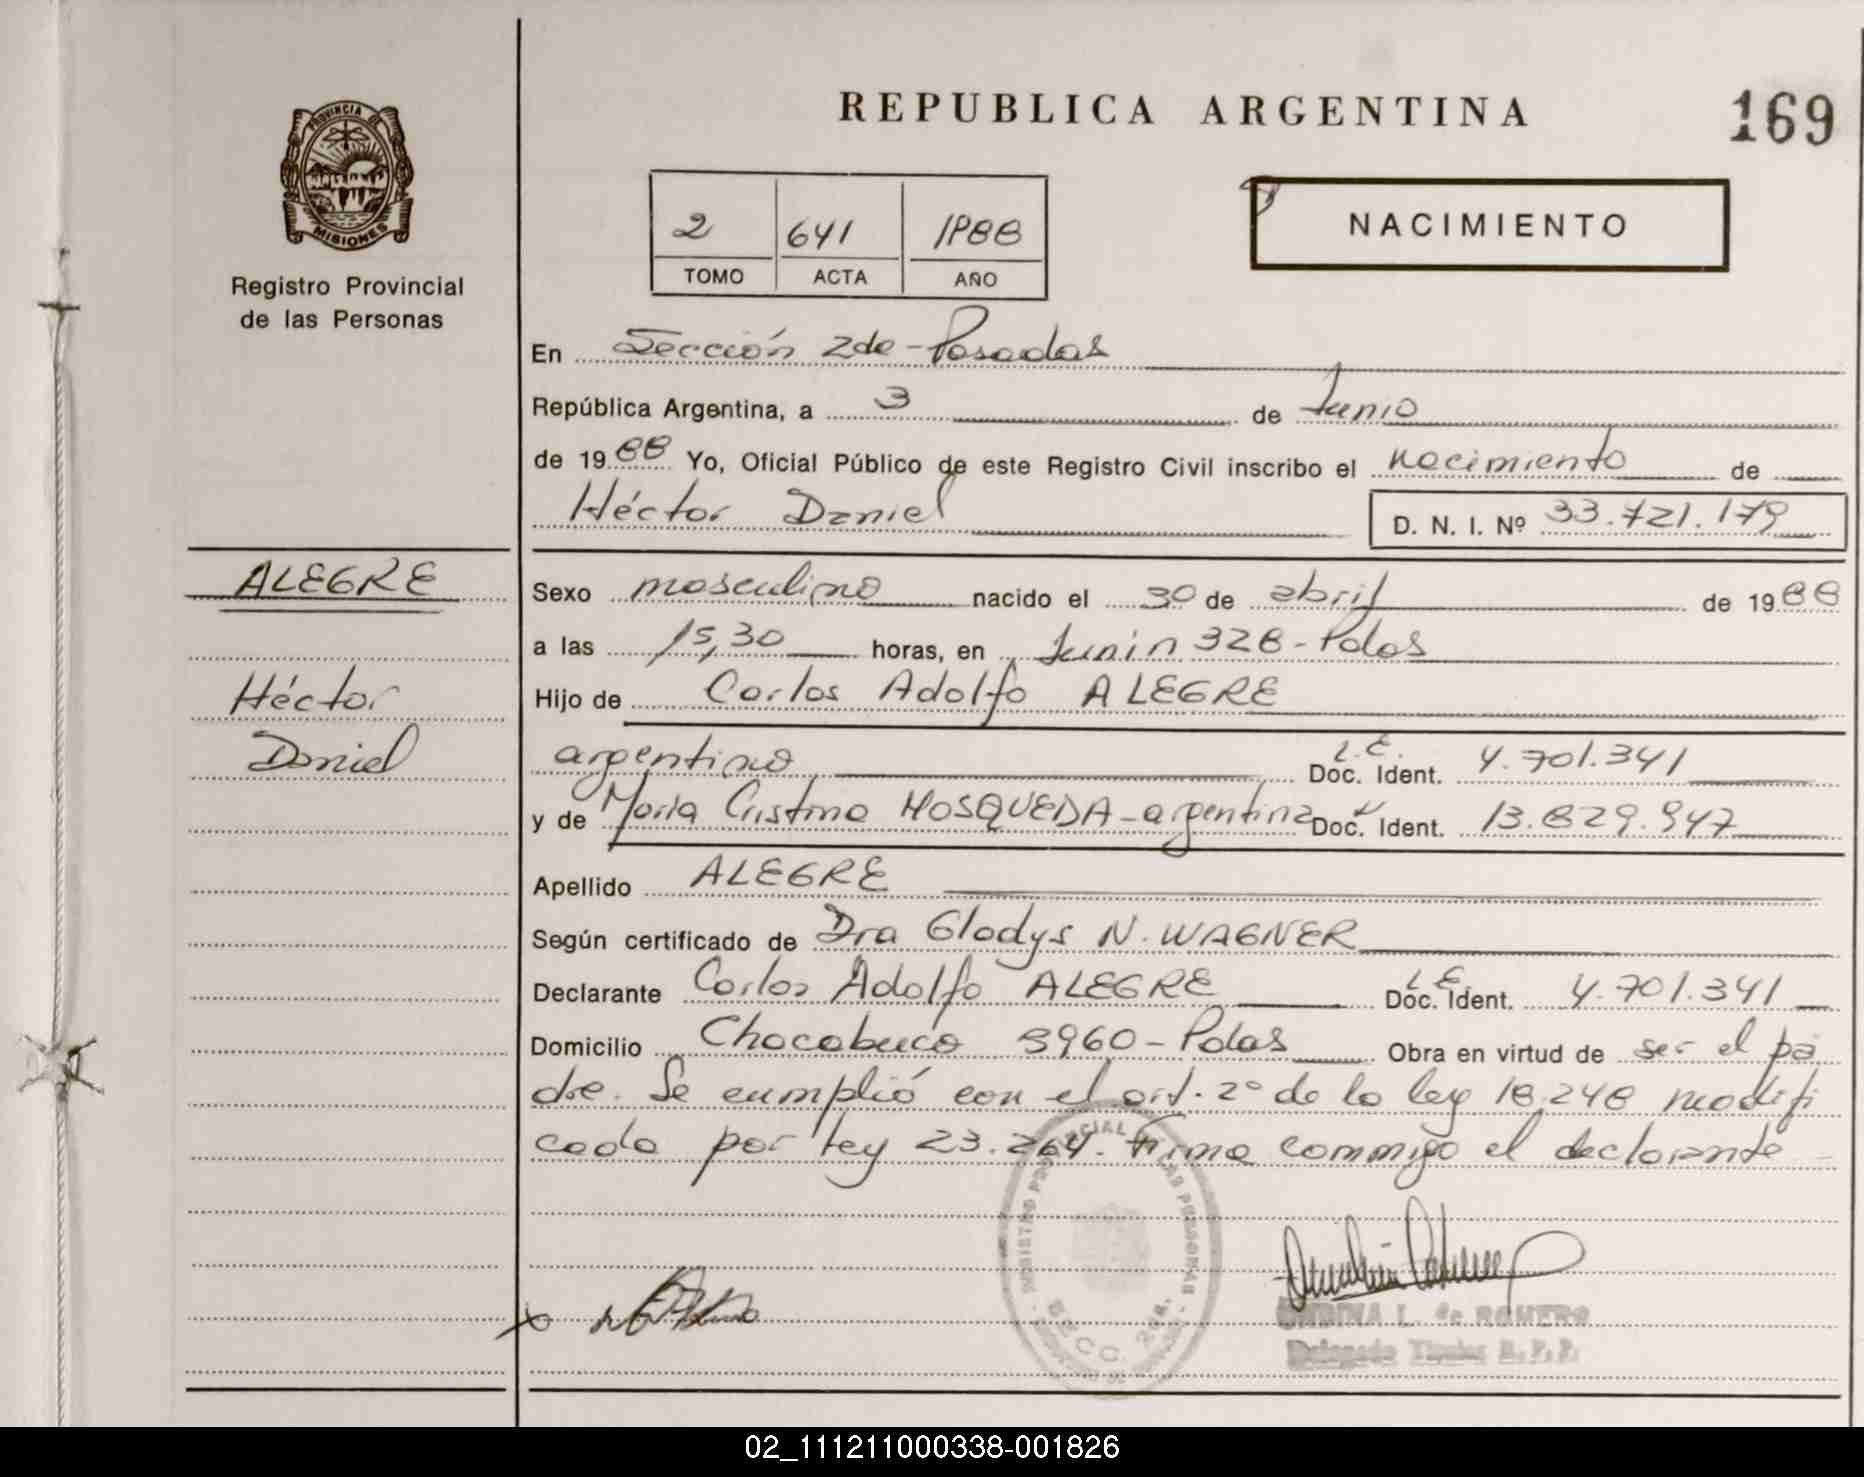 PROVINCIA DE
MISIONES
Registro Provincial
de las Personas
REPUBLICA ARGENTINA
169
2 641 1988
TOMO ACTA AÑO
NACIMIENTO
En Sección 2da - Posadas
República Argentina, a 3 de Junio
de 1988 Yo, Oficial Público de este Registro Civil inscribo el nacimiento de
Héctor Daniel D. N. I. Nº 33.721.179
ALEGRE
Héctor
Daniel
Sexo masculino nacido el 30 de abril de 1988
a las 15,30 horas, en Junín 328 - Pdas
Hijo de Carlos Adolfo ALEGRE
argentino L.E. Doc. Ident. 4.701.341
y de María Cristina MOSQUEDA - argentina Doc. Ident. 13.829.947
Apellido ALEGRE
Según certificado de Dra Gladys N. WAGNER
Declarante Carlos Adolfo ALEGRE L.E. Doc. Ident. 4.701.341
Domicilio Chacabuco 3960 - Pdas Obra en virtud de ser el pa
dre. Se cumplió con el art. 2º de la ley 18.248 modifi
cada por ley 23.264. Firma conmigo el declarante
REGISTRO PROVINCIAL DE LAS PERSONAS
SECC. 2da.
ONDINA L. de ROMERO
Delegado Titular R.P.P.
02_111211000338-001826